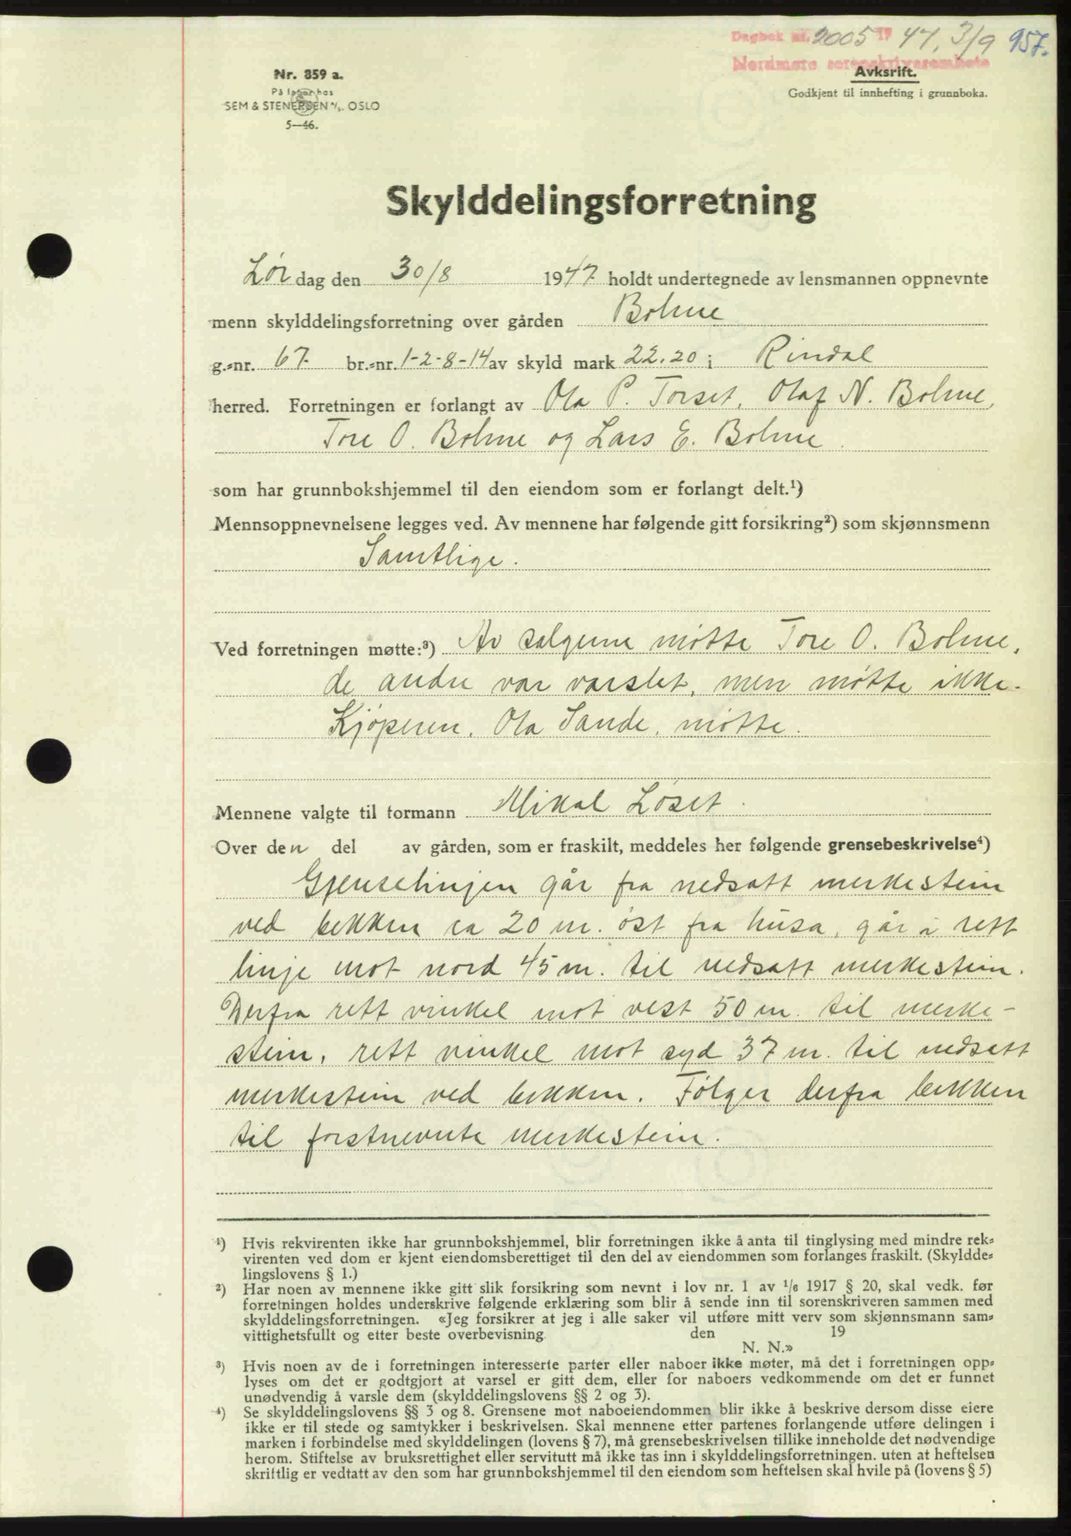 Dagbok nr. 2005 19 47, 3/9 957.
Nordmøre sorenskriverembete
Nr. 859 a.
På lager hos
SEM & STENERSEN A/S. OSLO
5—46.
Avksrift.
Godkjent til innhefting i grunnboka.
Skylddelingsforretning
Lør dag den 30/8 1947 holdt undertegnede av lensmannen oppnevnte
menn skylddelingsforretning over gården Bolme
g.=nr. 67. br.=nr. 1-2-8-14 av skyld mark 22.20 i Rindal
herred. Forretningen er forlangt av Ola P. Torset, Olaf N. Bolme,
Tore O. Bolme og Lars E. Bolme.
som har grunnbokshjemmel til den eiendom som er forlangt delt.¹)
Mennsoppnevnelsene legges ved. Av mennene har følgende gitt forsikring²) som skjønnsmenn
Samtlige.
Ved forretningen møtte:³) Av selgerne møtte Tore O. Bolme,
de andre var varslet, men møtte ikke.
Kjøperen, Ola Sande, møtte.
Mennene valgte til formann Mikal Løset.
Over den del av gården, som er fraskilt, meddeles her følgende grensebeskrivelse⁴)
Grenselinjen går fra nedsatt merkestein
ved bekken ca 20 m. øst fra husa, går i rett
linje mot nord 45 m. til nedsatt merkestein.
Derfra rett vinkel mot vest 50 m. til merke-
stein, rett vinkel mot syd 37 m. til nedsatt
merkestein ved bekken. Følger derfra bekken
til førstnevnte merkestein.
¹) Hvis rekvirenten ikke har grunnbokshjemmel, blir forretningen ikke å anta til tinglysing med mindre rek=
virenten ved dom er kjent eiendomsberettiget til den del av eiendommen som forlanges fraskilt. (Skyldde=
lingslovens § 1.)
²) Har noen av mennene ikke gitt slik forsikring som nevnt i lov nr. 1 av 1/6 1917 § 20, skal vedk. før
forretningen holdes underskrive følgende erklæring som blir å sende inn til sorenskriveren sammen med
skylddelingsforretningen. «Jeg forsikrer at jeg i alle saker vil utføre mitt verv som skjønnsmann sam=
vittighetsfullt og etter beste overbevisning. den 19
N. N.»
³) Hvis noen av de i forretningen interesserte parter eller naboer ikke møter, må det i forretningen opp=
lyses om det er godtgjort at varsel er gitt dem, eller for naboers vedkommende om det er funnet
unødvendig å varsle dem (skylddelingslovens §§ 2 og 3).
⁴) Se skylddelingslovens §§ 3 og 8. Grensene mot naboeiendommen blir ikke å beskrive dersom disse eiere
ikke er til stede og samtykker i beskrivelsen. Skal mennene etter partenes forlangende utføre delingen i
marken i forbindelse med skylddelingen (lovens § 7), må grensebeskrivelsen tillike inneholde det nødvendige
herom. Stiftelse av bruksrettighet eller servitutt må ikke tas inn i skylddelingsforretningen. uten at heftelsen
skriftlig er vedtatt av den som har grunnbokshjemmel til den eiendom som heftelsen skal hvile på (lovens § 5)